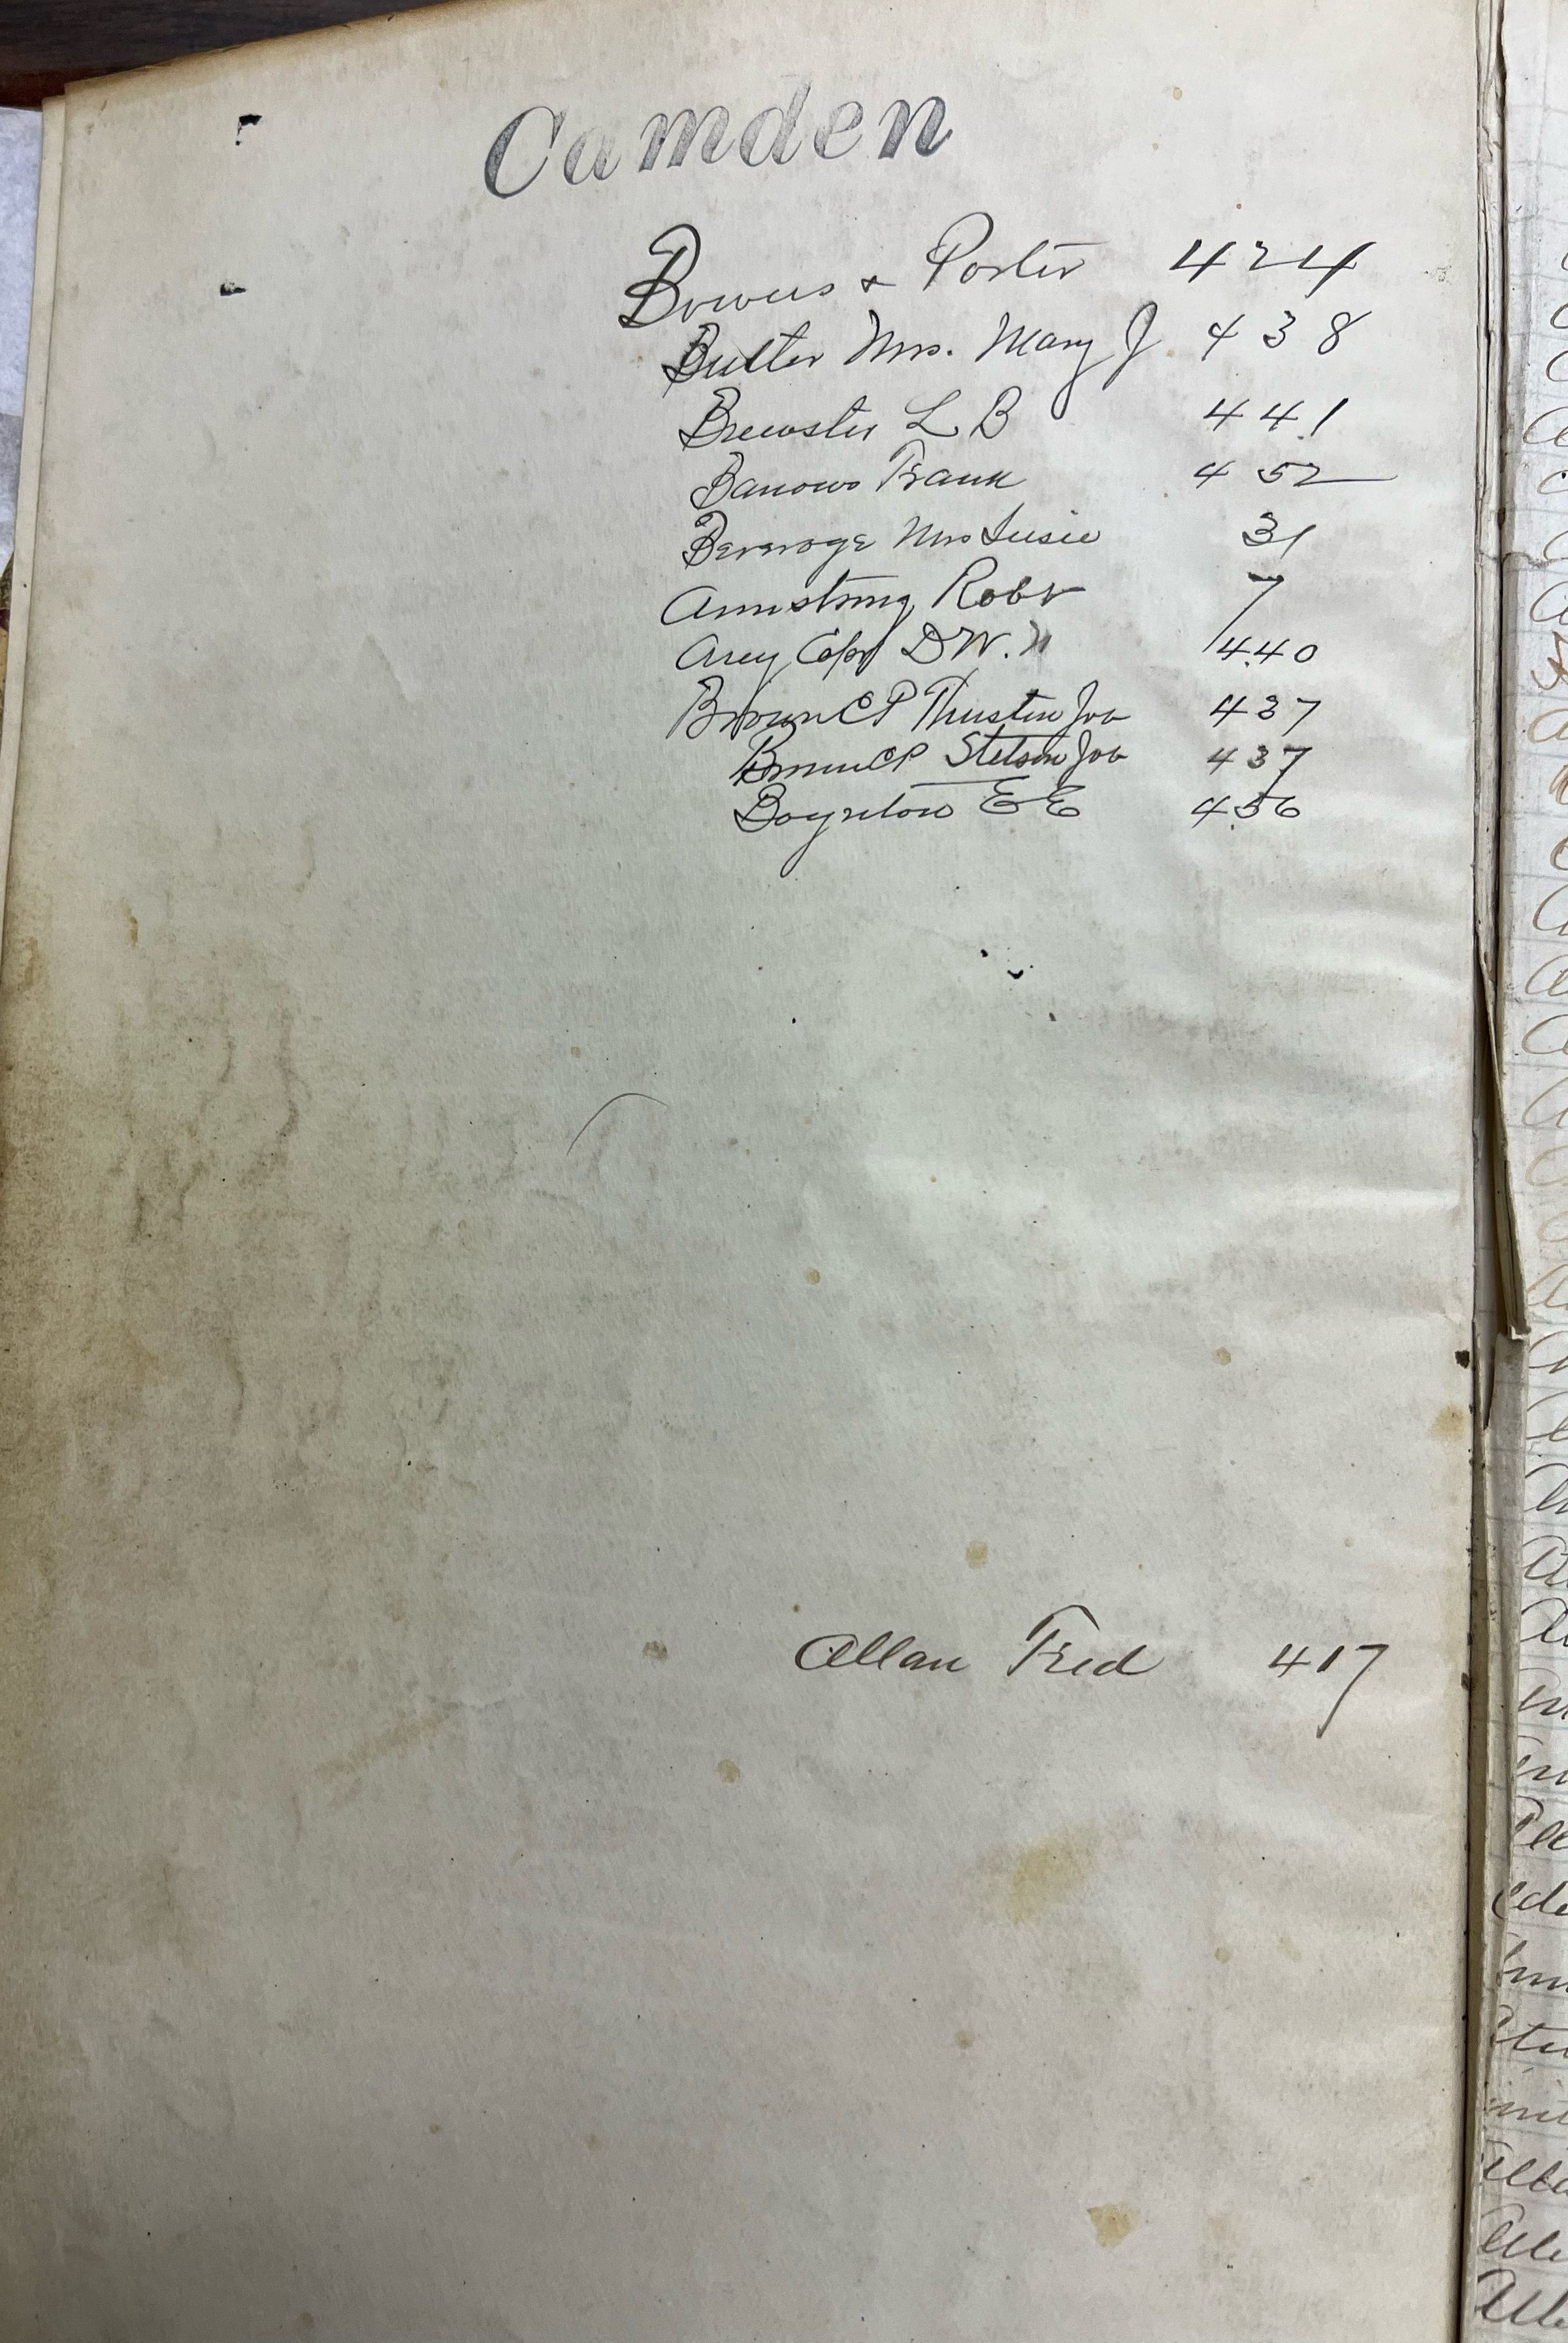 Camden
Bowers & Porter 424
Butler Mrs. Mary J 438
Brewster L B 441
Barrows Frank 452
Beverage Mrs Susie 31
Armstrong Robt 7
Arey Capt D W. 440
Brown C P Thurston Job 437
Brown C P Stetson Job 437
Boynton E E 456
Allan Fred 417